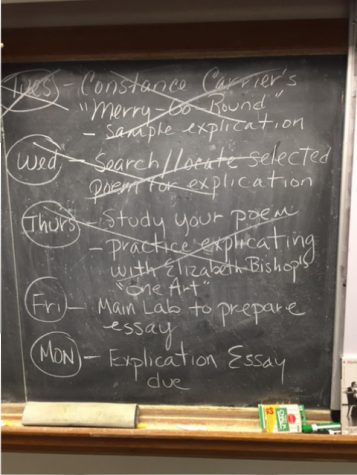 Tues - Constance Carrier's
"Merry-Go-Round"
- sample explication
Wed - Search/locate selected
poem for explication
Thurs - Study your poem
- practice explicating
with Elizabeth Bishop's
"One Art"
Fri - Main Lab to prepare
essay
MON - Explication Essay
due